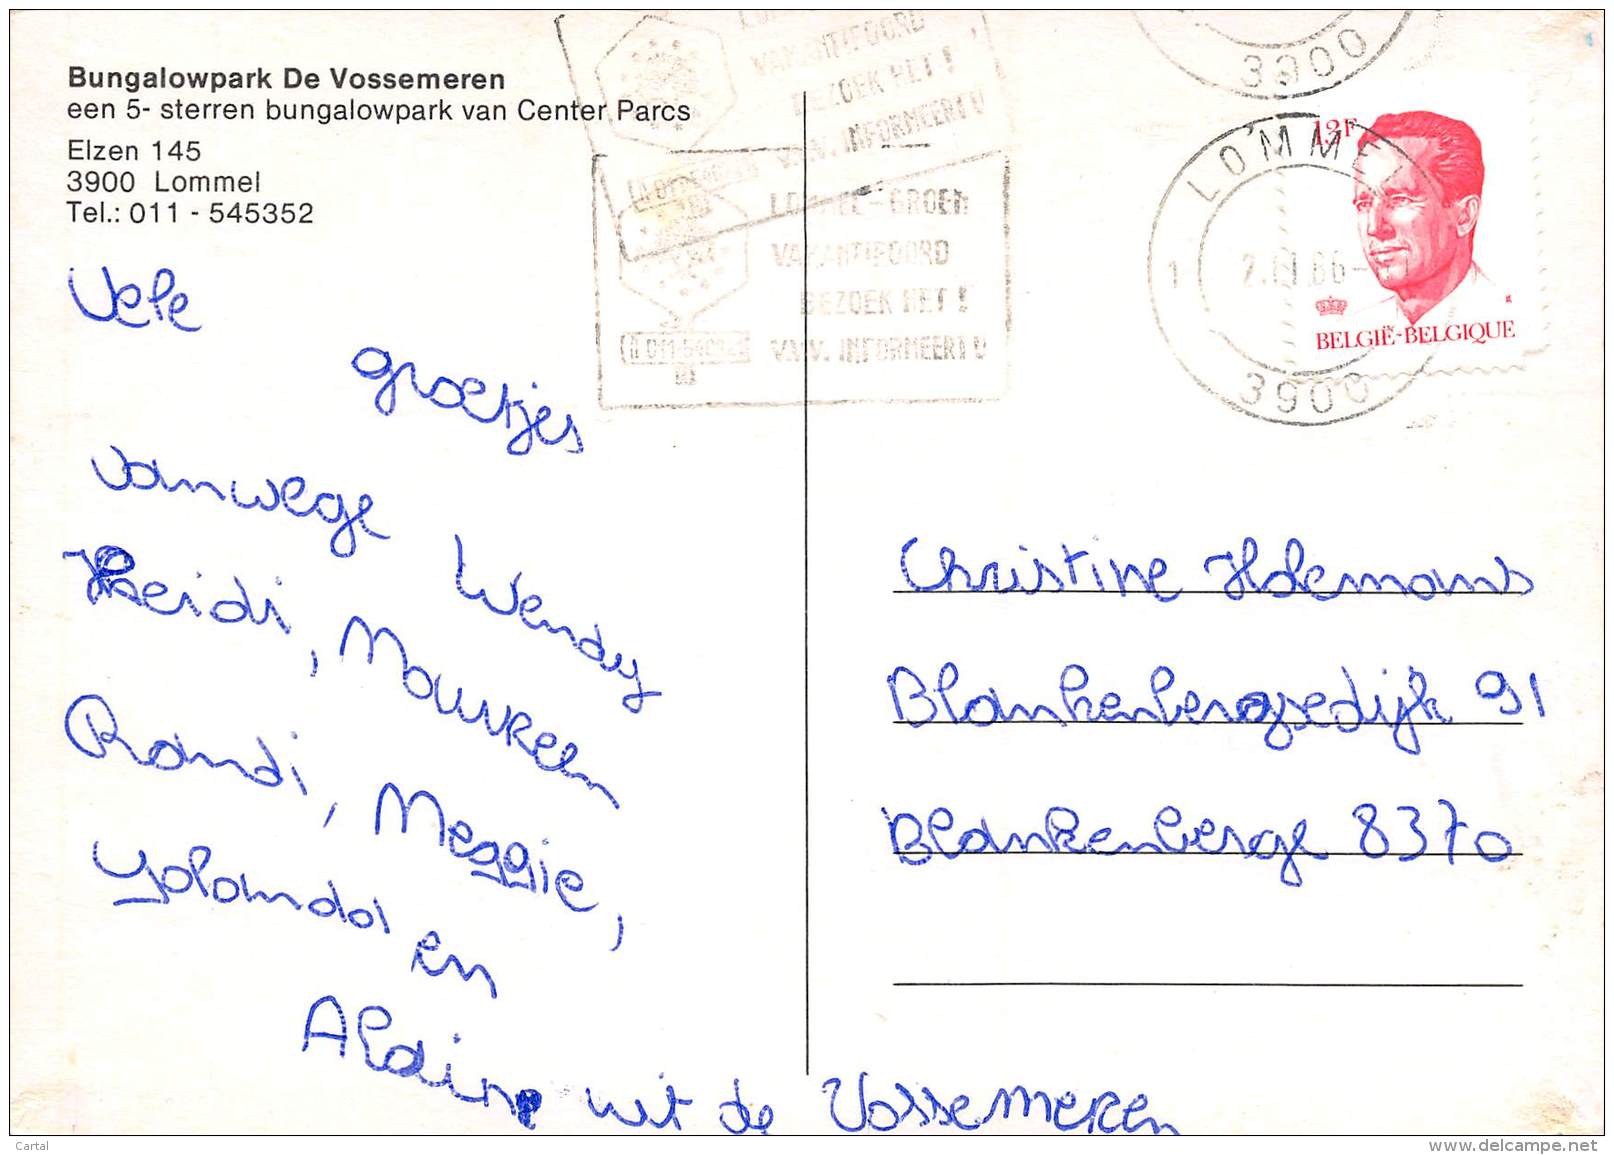 Bungalowpark De Vossemeren
een 5- sterren bungalowpark van Center Parcs
Elzen 145
3900 Lommel
Tel.: 011 - 545352
VAKANTIEOORD
BEZOEK HET !
V.V.V. INFORMEERT U
LOMMEL-GROEN
VAKANTIEOORD
BEZOEK HET !
V.V.V. INFORMEERT U
3900
LOMMEL
1
3900
13F
BELGIË-BELGIQUE
Vele
groetjes
vanwege Wendy
Heidi, Maureen
Randi, Meggie,
Yolanda en
Aldine uit de Vossemeren
Christine
Blankenbergsedijk 91
Blankenberge 8370
Cartal
delcampe.net